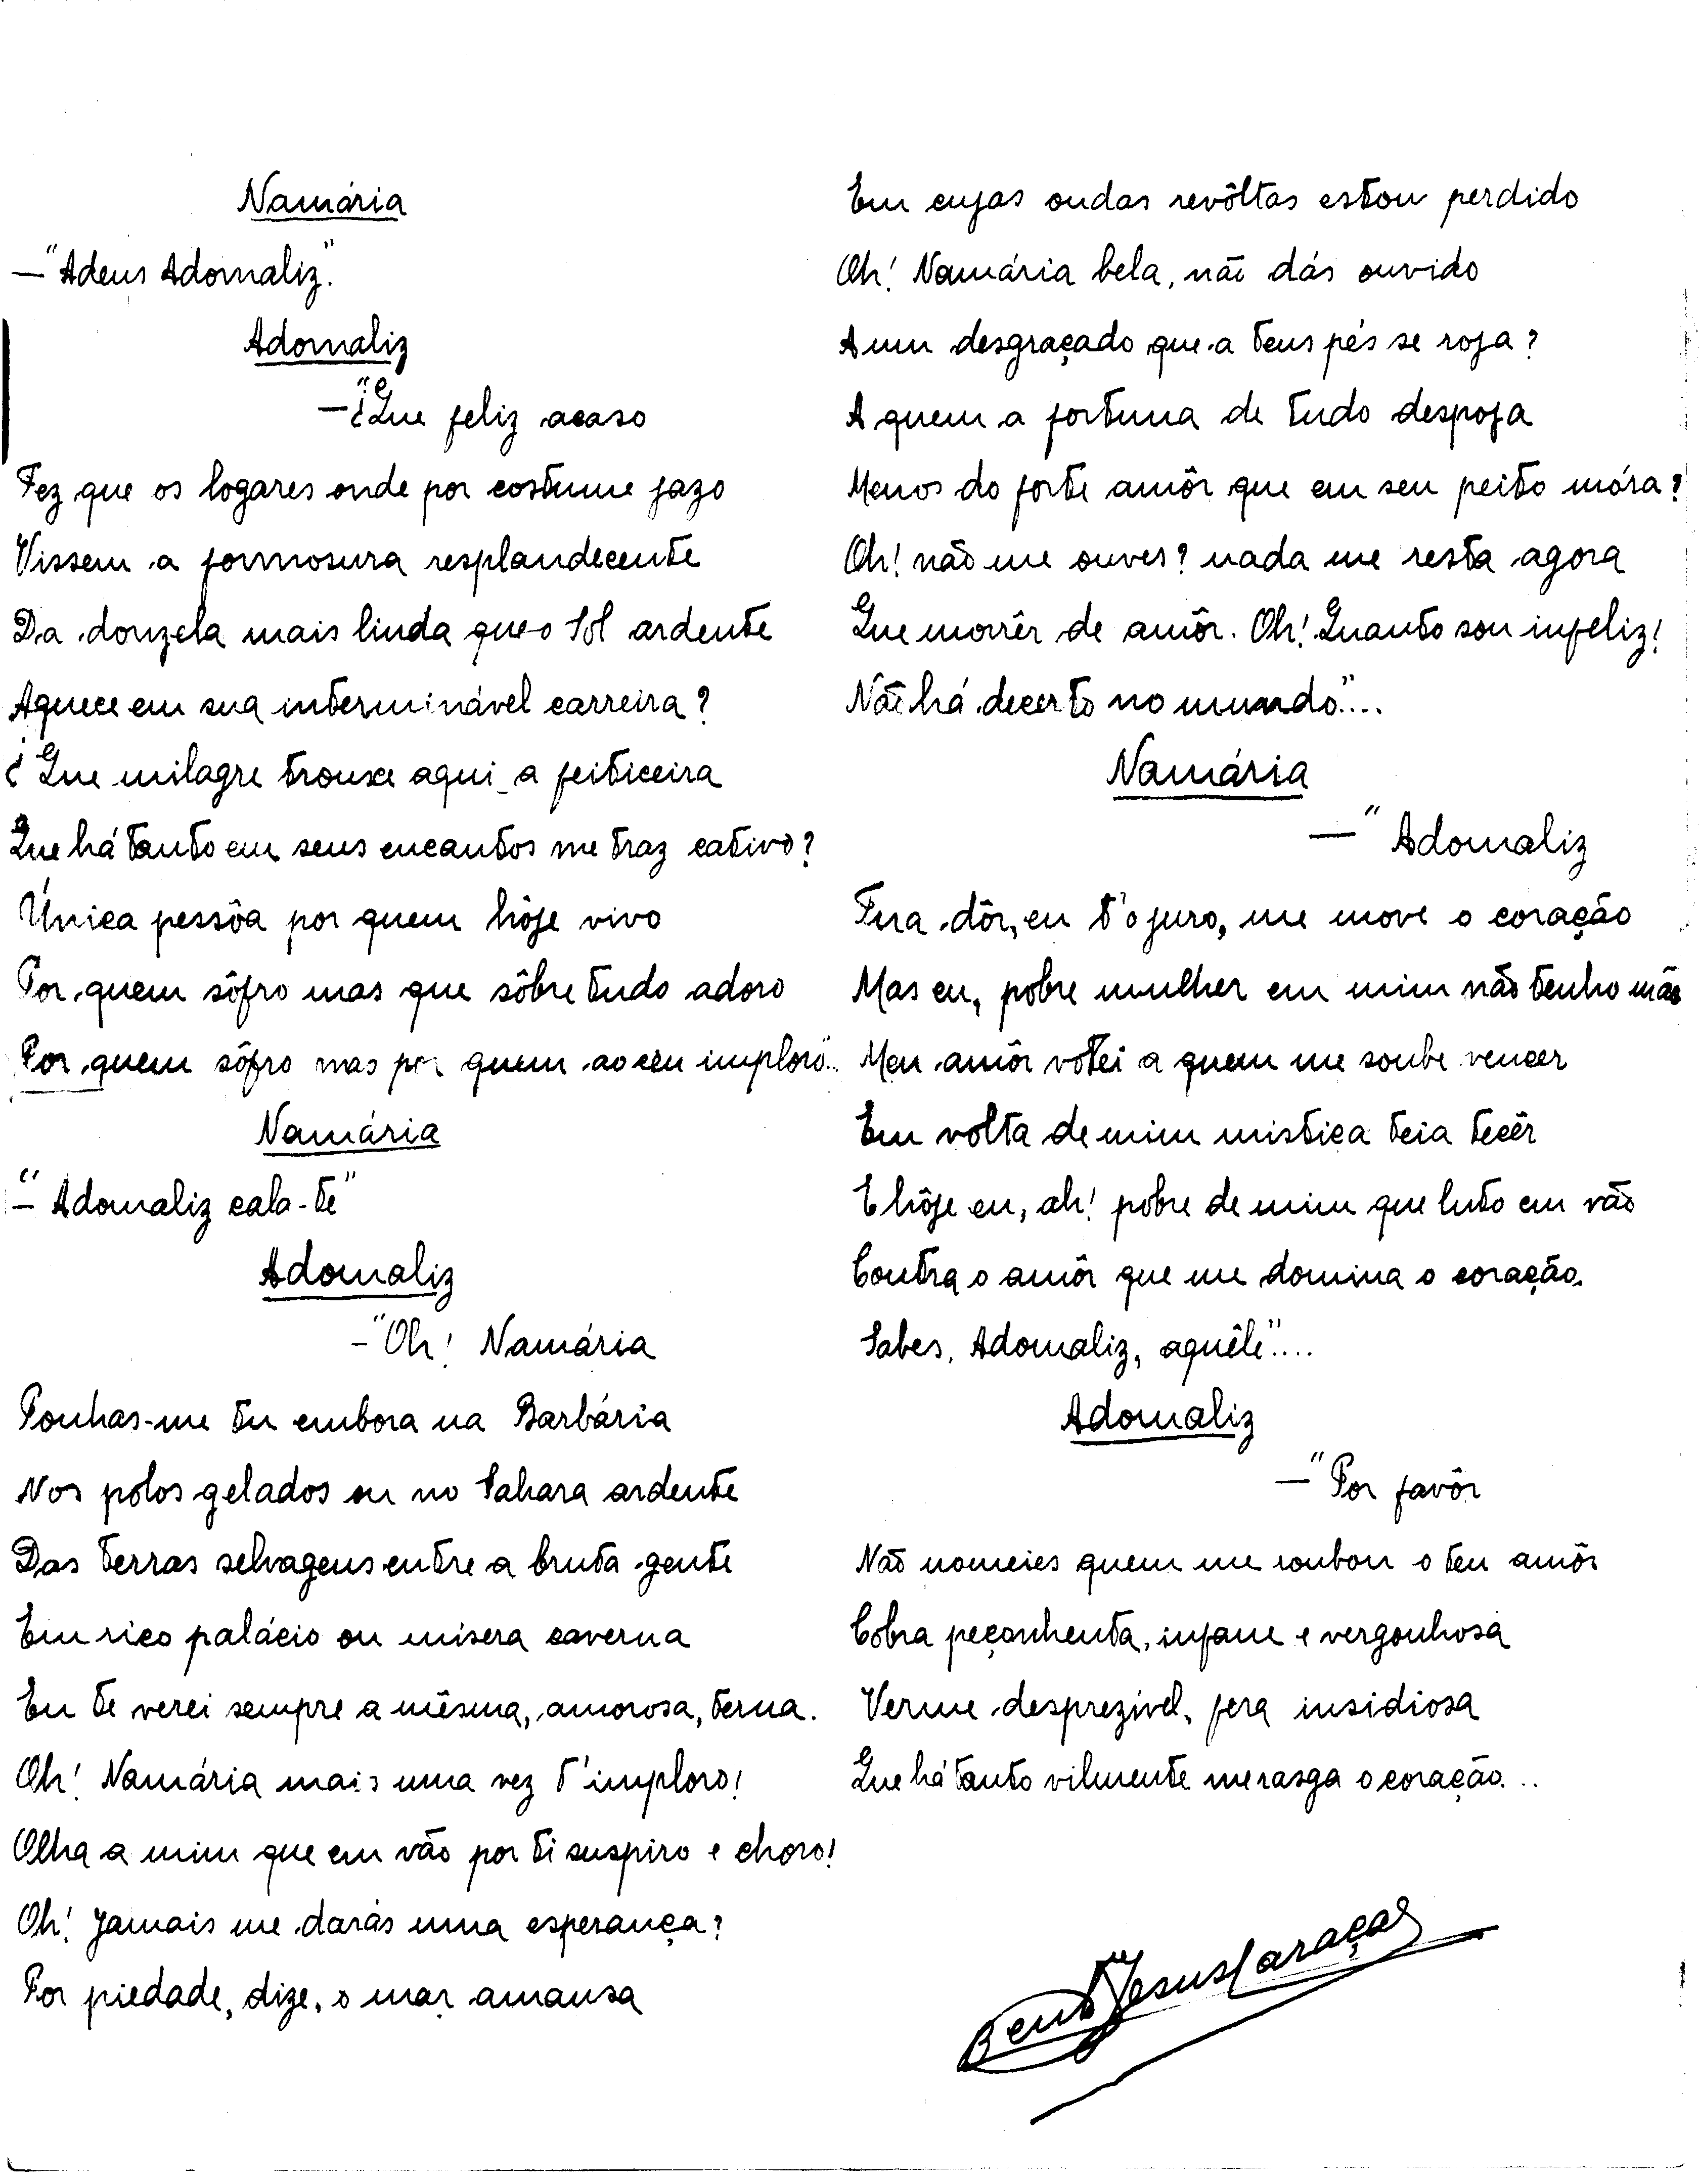 Namária
—"Adeus Adomaliz".
Adomaliz
—"¿Que feliz acaso
Fez que os logares onde por costume jazo
Vissem a formosura resplandecente
Da donzela mais linda que o Sol ardente
Aquece em sua interminável carreira?
¿Que milagre trouxe aqui a feiticeira
Que há tanto em seus encantos me traz cativo?
Única pessôa por quem hôje vivo
Por quem sôfro mas que sôbre tudo adoro
Por quem sôfro mas por quem ao ceu imploro"...
Namária
—"Adomaliz cala-te"
Adomaliz
—"Oh! Namária
Ponhas-me tu embora na Barbária
Nos polos gelados ou no Sahara ardente
Das terras selvagens entre a bruta gente
Em rico palácio ou misera caverna
Eu te verei sempre a mêsma, amorosa, terna.
Oh! Namária mais uma vez t'imploro!
Olha a mim que em vão por ti suspiro e choro!
Oh! Jamais me darás uma esperança?
Por piedade, dize, o mar amansa
Em cujas ondas revôltas estou perdido
Oh! Namária bela, não dás ouvido
A um desgraçado que a teus pés se roja?
A quem a fortuna de tudo despoja
Menos do forte amôr que em seu peito móra?
Oh! não me ouves? nada me resta agora
Que morrêr de amôr. Oh! Quanto sou infeliz!
Não há decerto no mundo"....
Namária
—"Adomaliz
Tua dôr, eu t'o juro, me move o coração
Mas eu, pobre mulher em mim não tenho mão
Meu amôr votei a quem me soube vencer
Em volta de mim mistica teia tecêr
E hôje eu, ah! pobre de mim que luto em vão
Contra o amôr que me domina o coração.
Sabes, Adomaliz, aquêle"....
Adomaliz
—"Por favôr
Não nomeies quem me roubou o teu amôr
Cobra peçonhenta, infame e vergonhosa
Verme desprezivel, fera insidiosa
Que há tanto vilmente me rasga o coração...
Bento Jesus Caraça